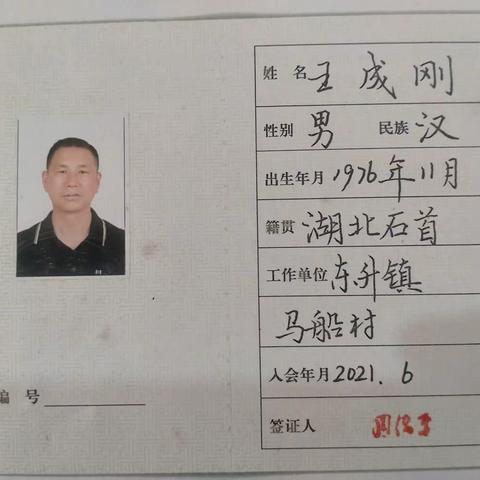 姓名 王成刚
性别 男 民族 汉
出生年月 1976年11月
籍贯 湖北石首
工作单位 东升镇
马船村
入会年月 2021.6
签证人
编号